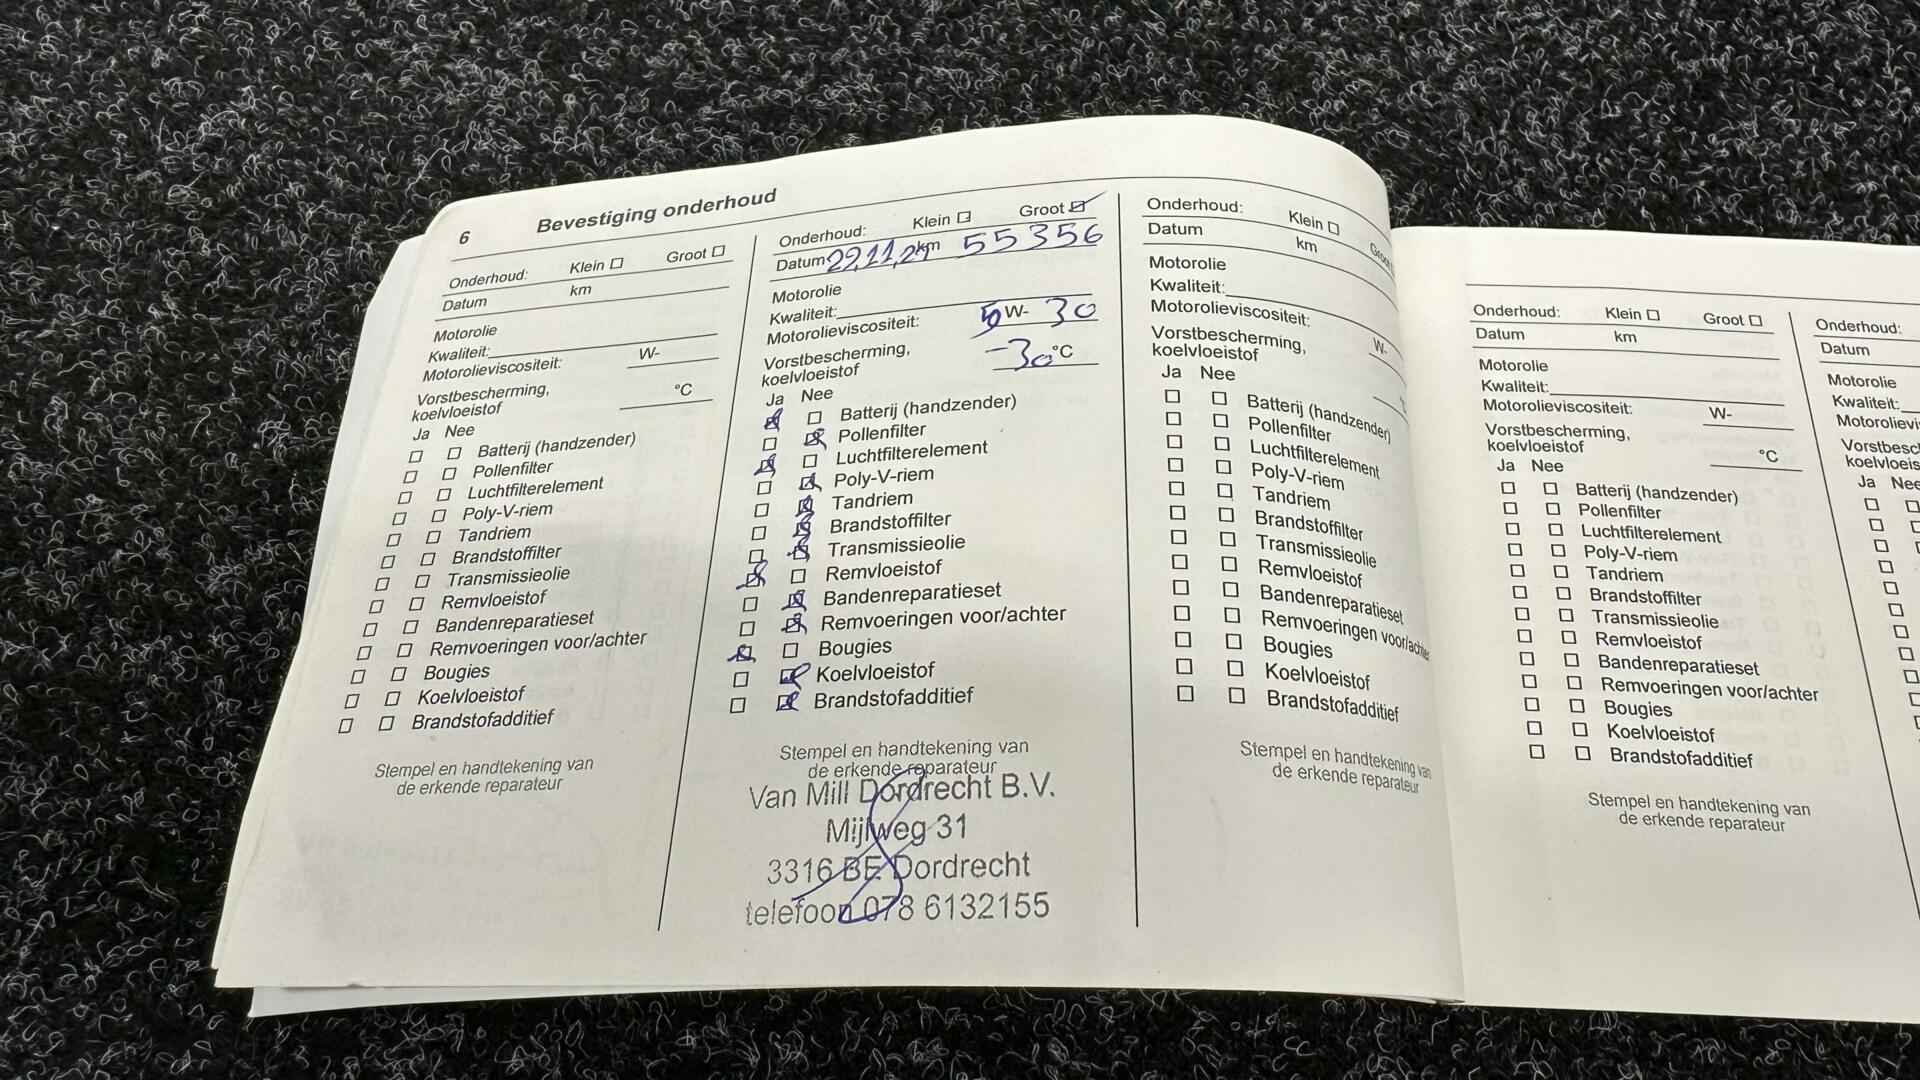 6 Bevestiging onderhoud
Onderhoud: Klein Groot
Datum km
Motorolie
Kwaliteit:
Motorolieviscositeit: W-
Vorstbescherming,
koelvloeistof °C
Ja Nee
Batterij (handzender)
Pollenfilter
Luchtfilterelement
Poly-V-riem
Tandriem
Brandstoffilter
Transmissieolie
Remvloeistof
Bandenreparatieset
Remvoeringen voor/achter
Bougies
Koelvloeistof
Brandstofadditief
Stempel en handtekening van
de erkende reparateur
Onderhoud: Klein Groot
Datum 22,11,21 km 55356
Motorolie
Kwaliteit:
Motorolieviscositeit: 5W- 30
Vorstbescherming,
koelvloeistof -30 °C
Ja Nee
Batterij (handzender)
Pollenfilter
Luchtfilterelement
Poly-V-riem
Tandriem
Brandstoffilter
Transmissieolie
Remvloeistof
Bandenreparatieset
Remvoeringen voor/achter
Bougies
Koelvloeistof
Brandstofadditief
Stempel en handtekening van
de erkende reparateur
Van Mill Dordrecht B.V.
Mijlweg 31
3316 BE Dordrecht
telefoon 078 6132155
Onderhoud: Klein Groot
Datum km
Motorolie
Kwaliteit:
Motorolieviscositeit: W-
Vorstbescherming,
koelvloeistof
Ja Nee
Batterij (handzender)
Pollenfilter
Luchtfilterelement
Poly-V-riem
Tandriem
Brandstoffilter
Transmissieolie
Remvloeistof
Bandenreparatieset
Remvoeringen voor/achter
Bougies
Koelvloeistof
Brandstofadditief
Stempel en handtekening van
de erkende reparateur
Onderhoud: Klein Groot
Datum km
Motorolie
Kwaliteit:
Motorolieviscositeit: W-
Vorstbescherming,
koelvloeistof °C
Ja Nee
Batterij (handzender)
Pollenfilter
Luchtfilterelement
Poly-V-riem
Tandriem
Brandstoffilter
Transmissieolie
Remvloeistof
Bandenreparatieset
Remvoeringen voor/achter
Bougies
Koelvloeistof
Brandstofadditief
Stempel en handtekening van
de erkende reparateur
Onderhoud:
Datum
Motorolie
Kwaliteit:
Motorolievi
Vorstbesc
koelvloeis
Ja Nee